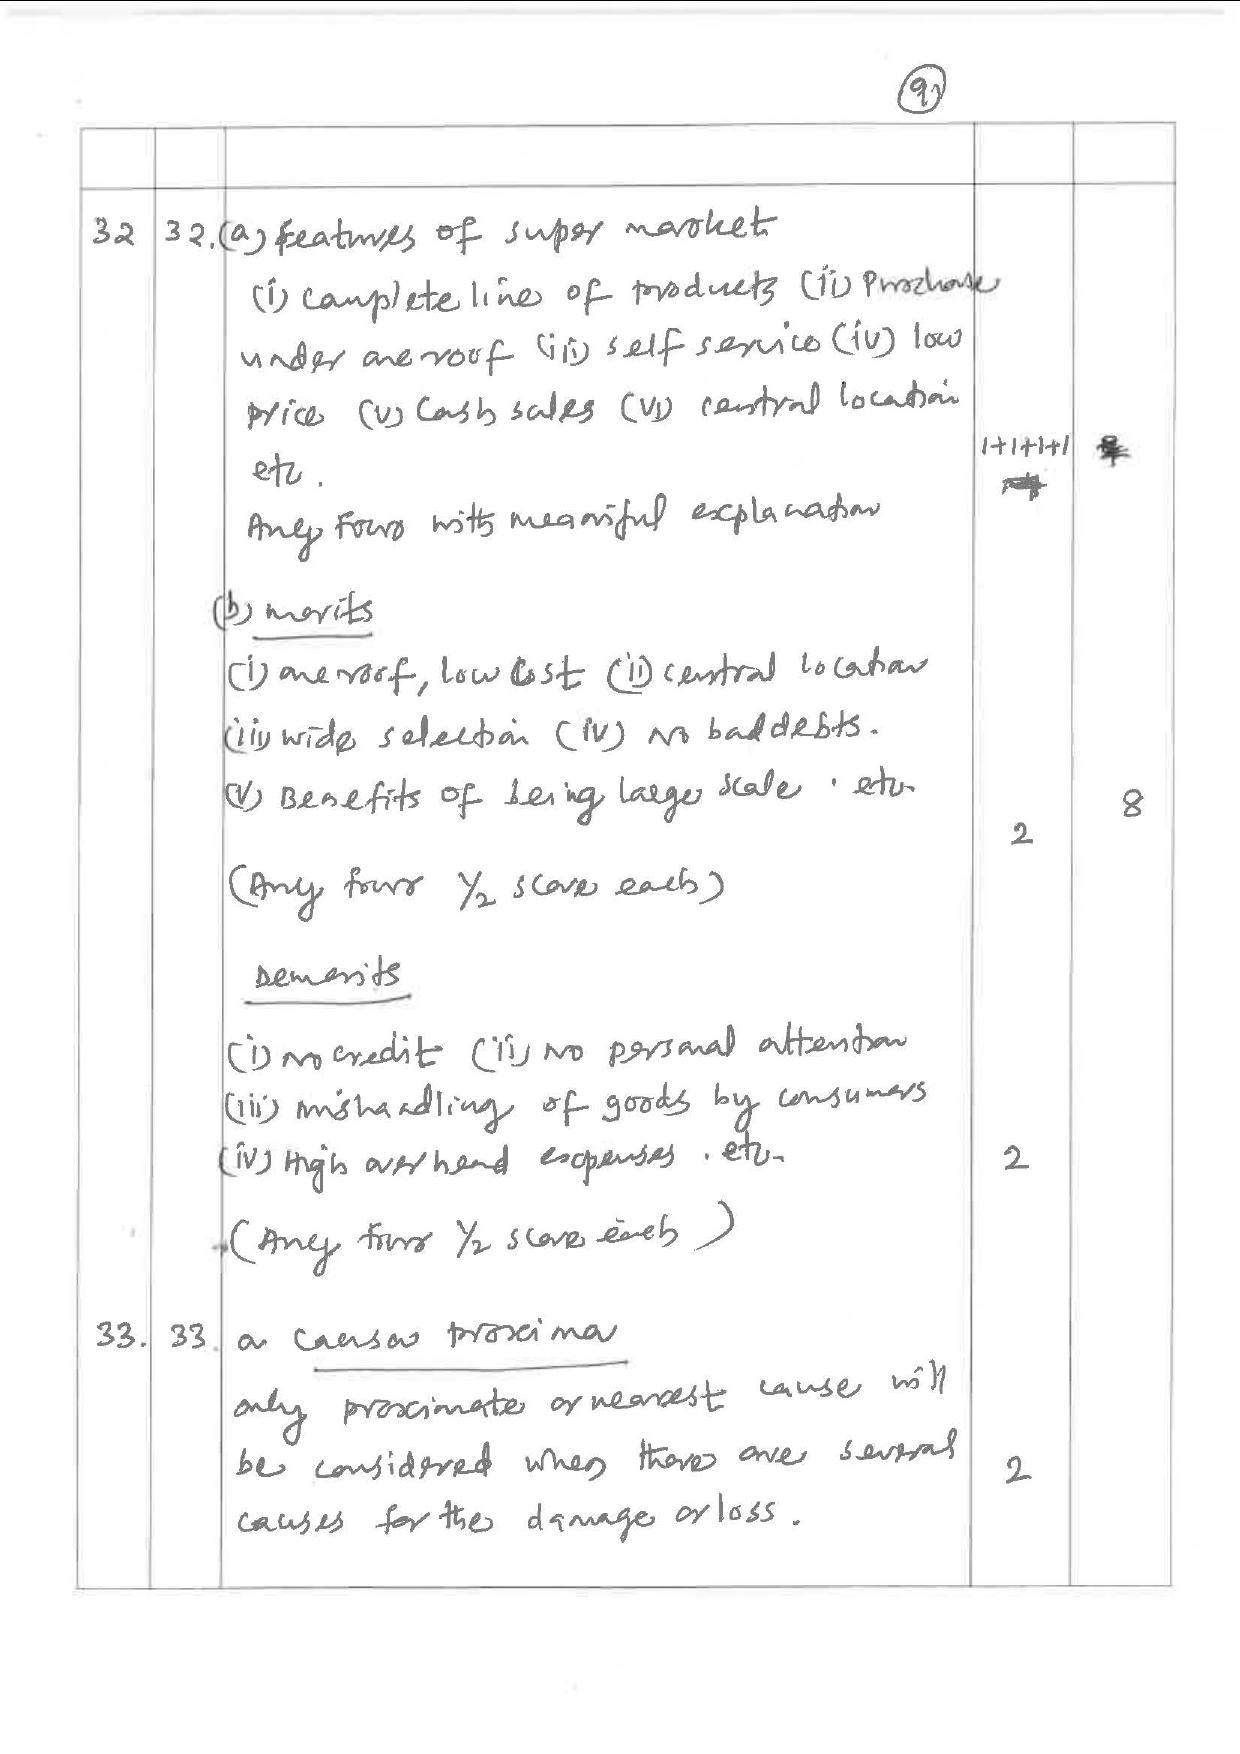 9)
32 32. (a) Features of super market
(i) complete line of products (ii) Purchase
under one roof (iii) self service (iv) low
price (v) Cash sales (vi) central location
etc.
1+1+1+1
Any Four with meaningful explanation
(b) merits
(i) one roof, low cost (ii) central location
(iii) wide selection (iv) No bad debts.
(v) Benefits of being large scale. etc.
8
2
(Any four 1/2 score each)
Demerits
(i) no credit (ii) No personal attention
(iii) mishandling of goods by consumers
(iv) High overhead expenses. etc. 2
(Any four 1/2 score each)
33. 33. a Causa proxima
only proximate or nearest cause will
be considered when there are several 2
causes for the damage or loss.